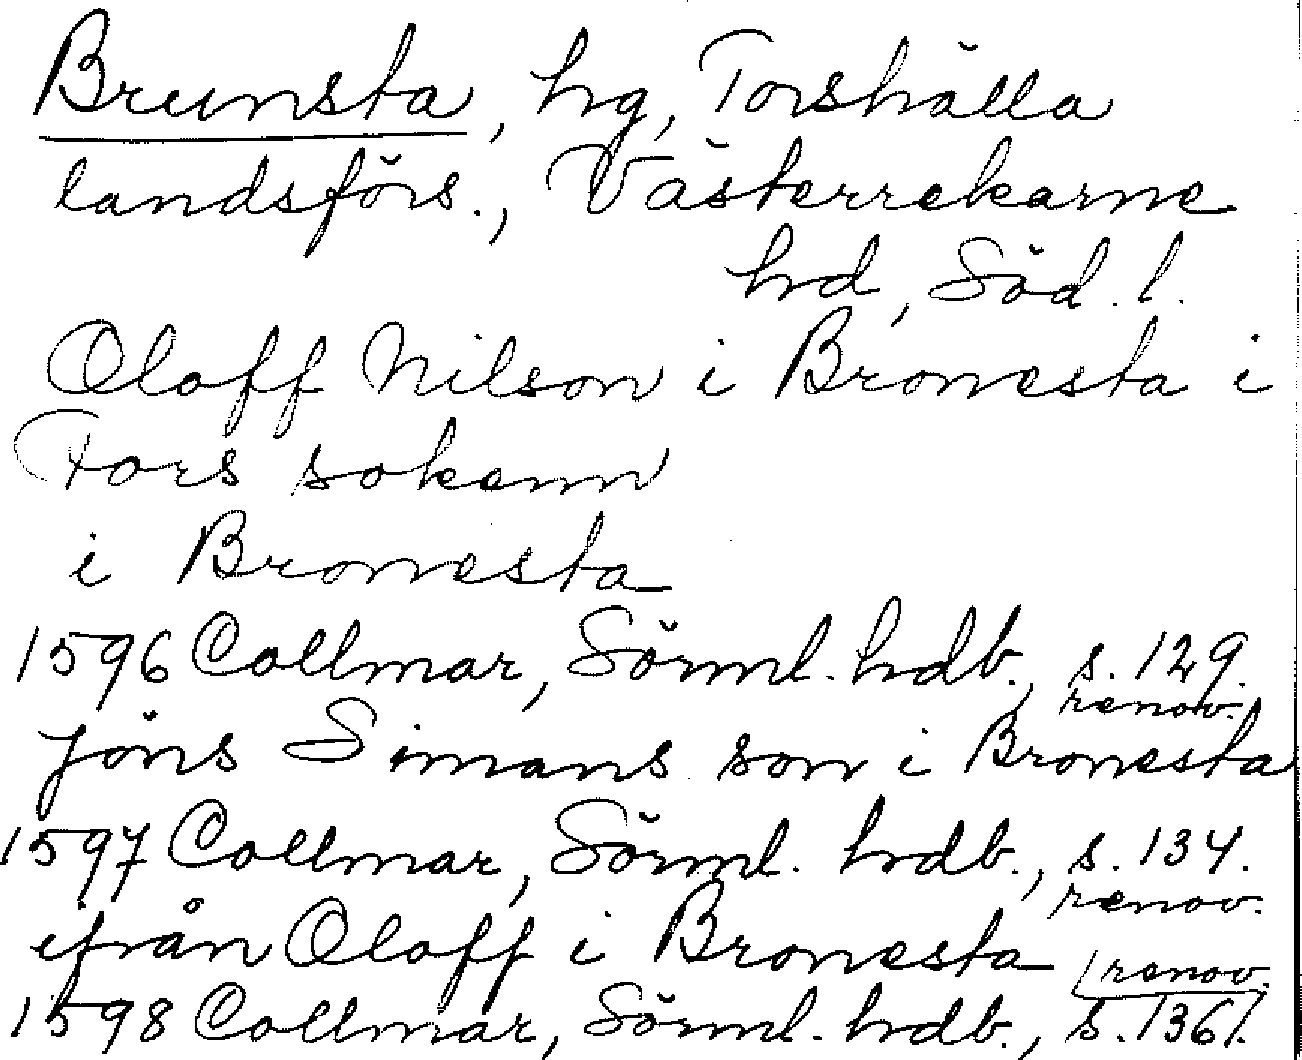 Brunsta, hg, Torshälla
landsförs., Västerrekarne
hd, Söd. l.
Oloff Nilson i Bronesta i
Fors sokenn
i Bronesta
1596 Collmar, Sörml. hdb., s. 129.
renov.
jöns Simans son i Bronesta
1597 Collmar, Sörml. hdb., s. 134.
renov.
ifrån Oloff i Bronesta
renov.
1598 Collmar, Sörml. hdb., s. 136.